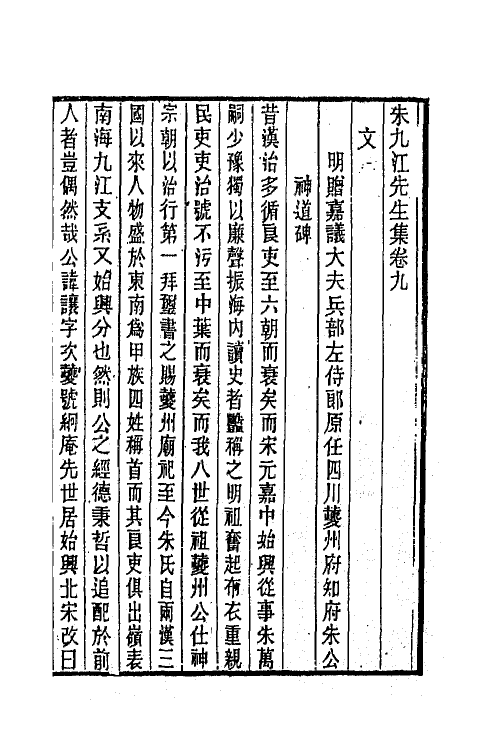 朱九江先生集卷九
文一
明贈嘉議大夫兵部左侍郞原任四川夔州府知府朱公
神道碑
昔漢治多循良吏至六朝而衰矣而宋元嘉中始興從事朱萬
嗣少豫獨以廉聲振海內讀史者豔稱之明祖奮起布衣重親
民吏吏治號不污至中葉而衰矣而我八世從祖夔州公仕神
宗朝以治行第一拜璽書之賜夔州廟祀至今朱氏自兩漢三
國以來人物盛於東南爲甲族四姓稱首而其良吏俱出嶺表
南海九江支系又始興分也然則公之經德秉哲以追配於前
人者豈偶然哉公諱讓字次夔號絅庵先世居始興北宋改曰